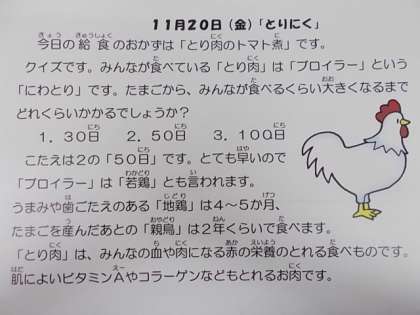 11月20日（金）「とりにく」
今日の給食のおかずは「とり肉のトマト煮」です。
クイズです。みんなが食べている「とり肉」は「ブロイラー」という
「にわとり」です。たまごから、みんなが食べるくらい大きくなるまで
どれくらいかかるでしょうか？
1．30日　2．50日　3．100日
こたえは2の「50日」です。とても早いので
「ブロイラー」は「若鶏」とも言われます。
うまみや歯ごたえのある「地鶏」は4～5か月、
たまごを産んだあとの「親鳥」は2年くらいで食べます。
「とり肉」は、みんなの血や肉になる赤の栄養のとれる食べものです。
肌によいビタミンAやコラーゲンなどもとれるお肉です。